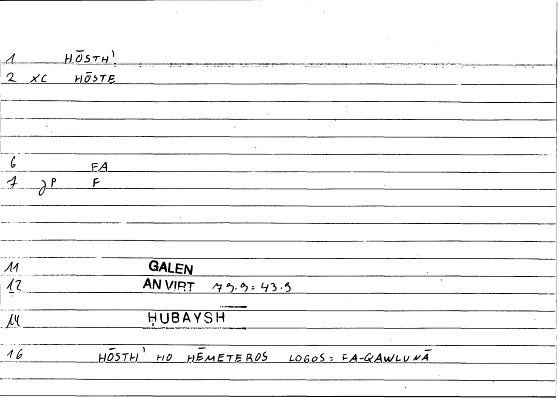 1 HŌSTH'
2 XC HŌSTE
6 FA
7 JP F
11 GALEN
12 AN VIRT 79.9 = 43.9
14 ḤUBAYSH
16 HŌSTH' HO HĒMETEROS LOGOS = FA-QAWLUNĀ